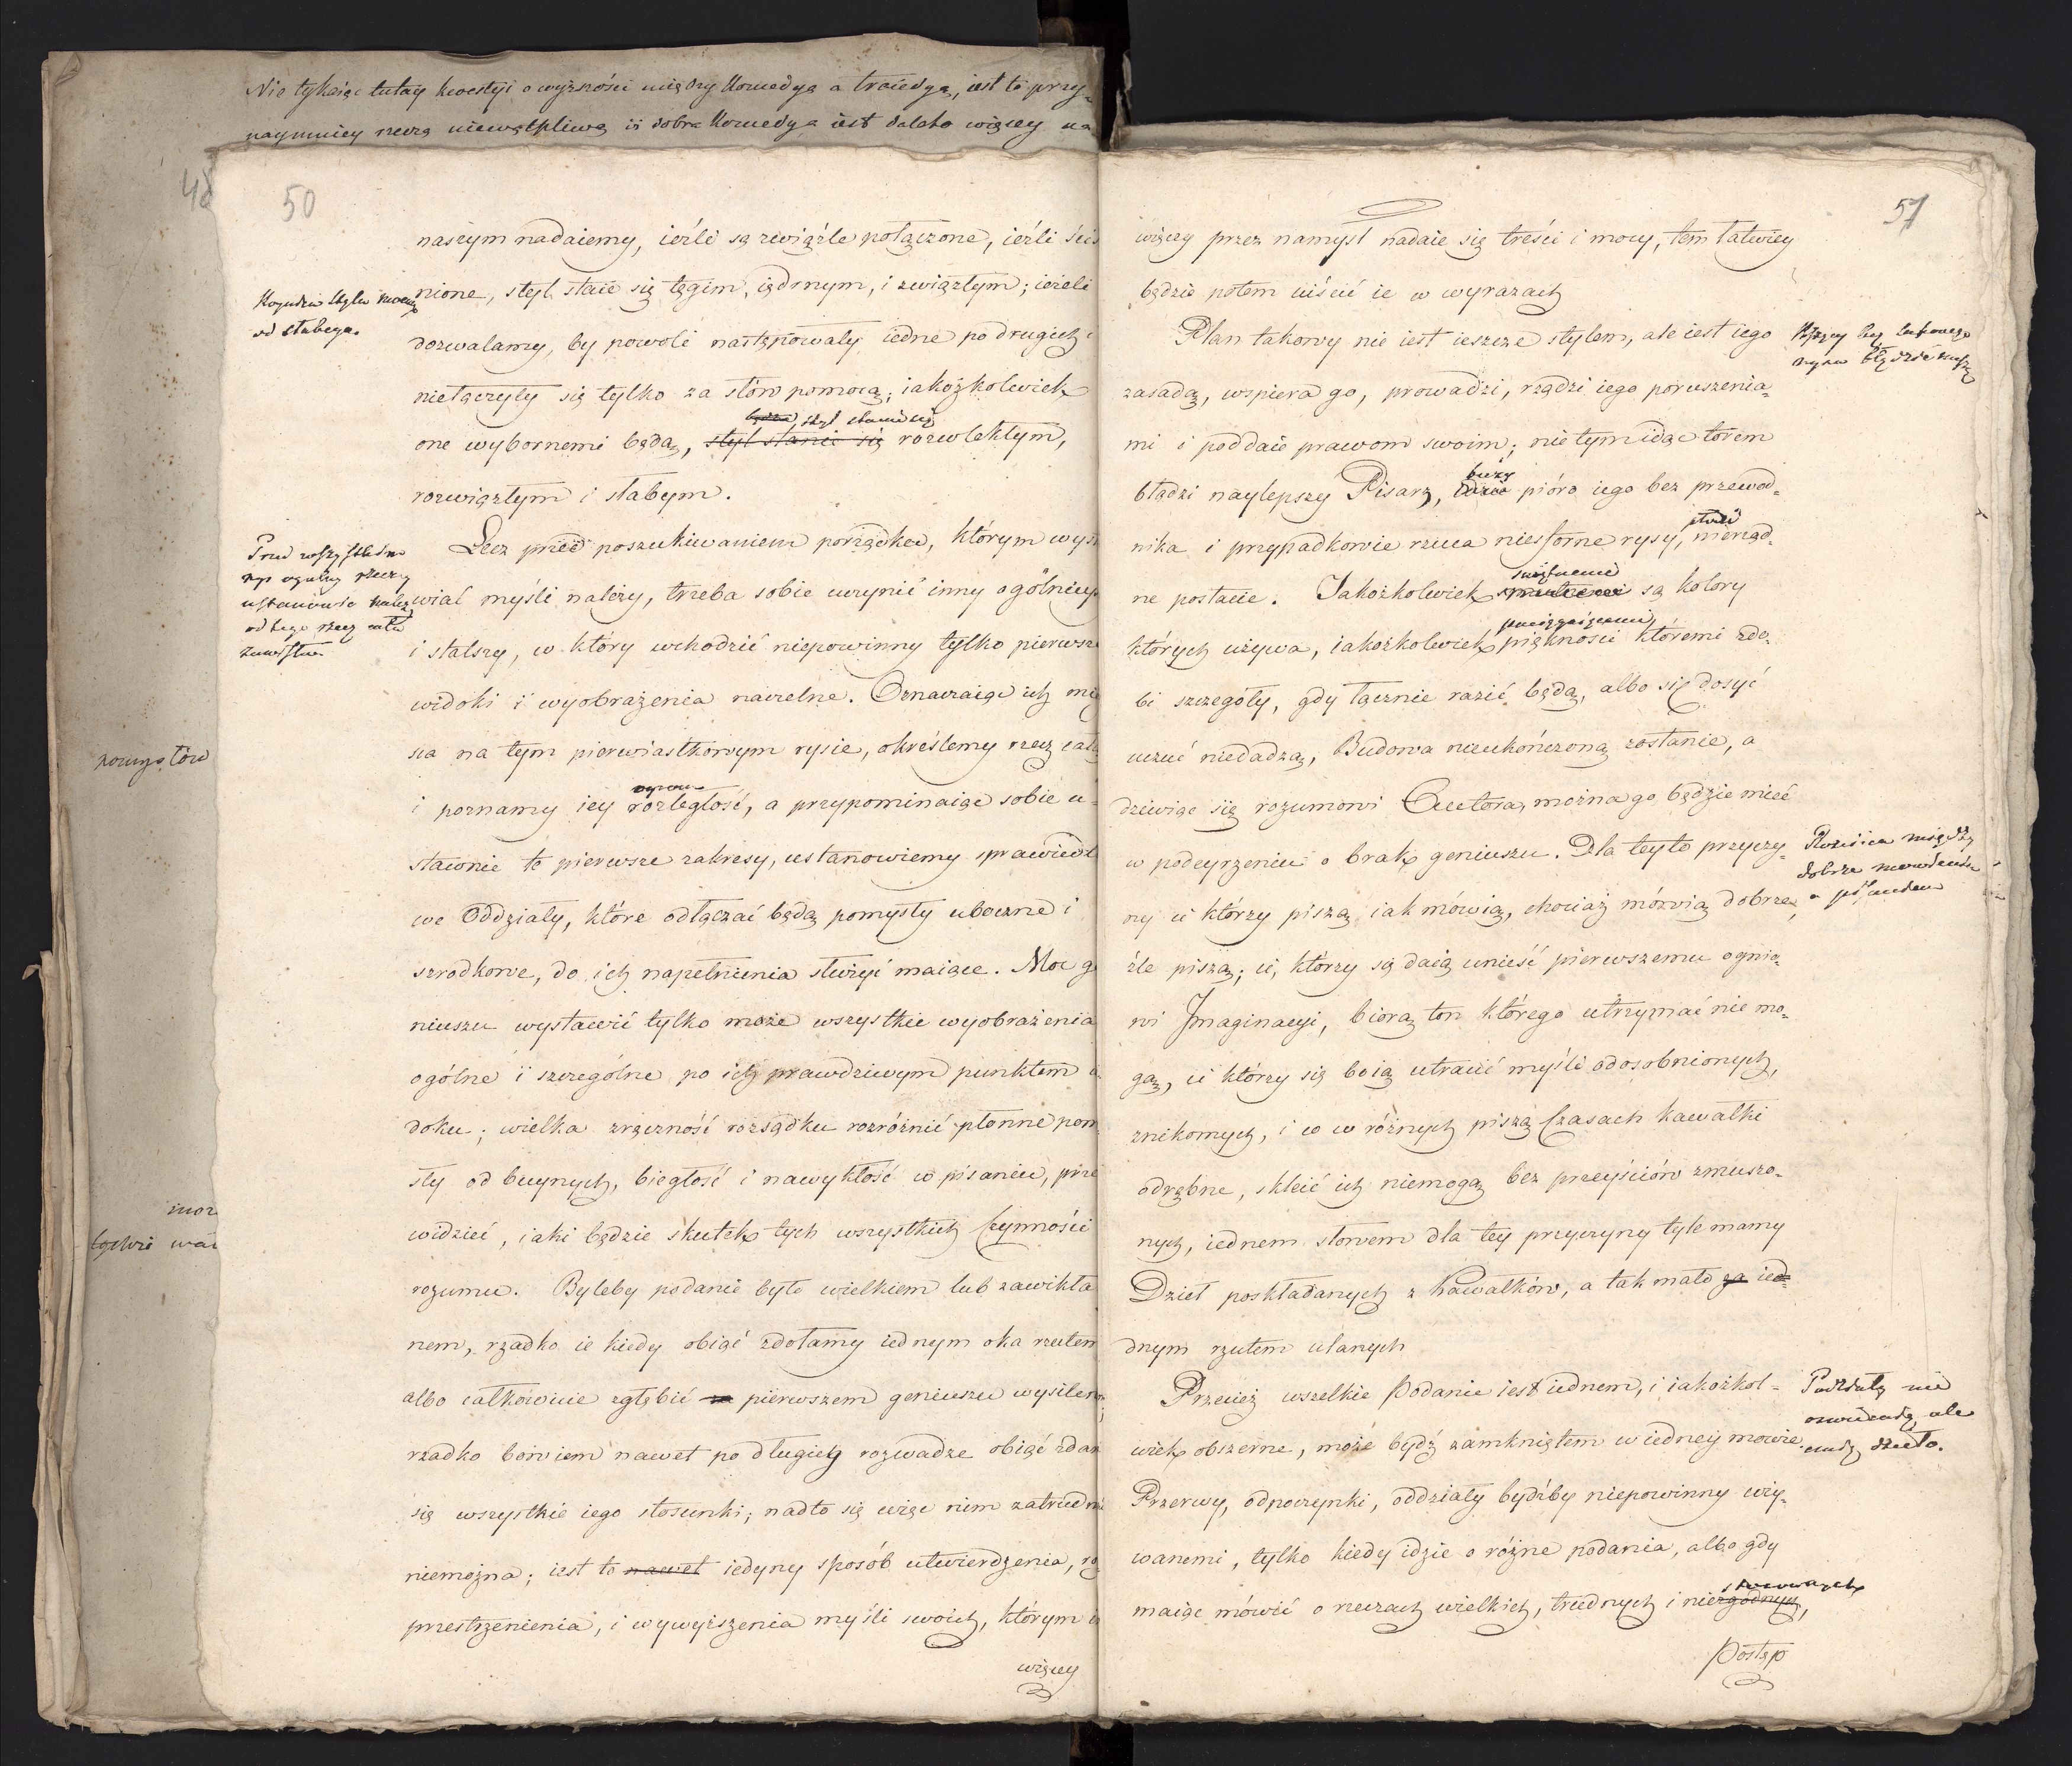 Nie tykaiąc tutay kwestyi o wyższości między Komedyą a traiedyą, iest to przy-
naymniey rzeczą niewątpliwą iż dobra Komedya iest daleko więcey na
48
50
naszym nadaiemy, ieźli są zwięźle połączone, ieźli ścis
nione, styl staie się tęgim, iędrnym, i zwięzłym; ieżeli
od słabego.
dozwalamy, by powoli następowały iedne po drugich i
niełączyły się tylko za słów pomocą; iakożkolwiek
będzie, styl stanie się
one wybornemi będą, styl stanie się rozwlekłym,
rozwięzłym i słabym.
Lecz przed poszukiwaniem porządku, którym wys
Przed wszystkiem
rys ogulny rzeczy
ustanowić należy
od tego rzecz cała
zawisła.
wiać myśli należy, trzeba sobie uczynić inny ogólniey
i stalszy, w który wchodzić niepowinny tylko pierwsze
widoki i wyobrażenia naczelne. Oznaczaiąc ich miey
sca na tym pierwiastkowym rysie, określemy rzecz całą
i poznamy iey rozległość, a przypominaiąc sobie u-
stawnie te pierwsze zakresy, ustanowiemy sprawiedl
we Oddziały, które odłączać będą pomysły uboczne i
szrodkowe, do ich napełnienia służyć maiące. Moc ge
niuszu wystawić tylko może wszystkie wyobrażenia
ogólne i szczególne po ich prawdziwym punktem
doku; wielka zręczność rozsądku rozróżnić płonne pom
sły od buynych, biegłość i nawykłość w pisaniu, prze
widzieć, iaki będzie skutek tych wszystkich Czynności
rozumu. Byleby podanie było wielkiem lub zawikła
nem, rzadko ie kiedy obiąć zdołamy iednym oka rzutem
albo całkowicie zgłębić za pierwszem geniuszu wysilen
rzadko bowiem nawet po długiey rozwadze obiąć zdar
się wszystkie iego stosunki; nadto się więc nim zatrudn
niemożna; iest to nawet iedyny sposób utwierdzenia, ro
przestrzenienia, i wywyższenia myśli swoich, którym i
więcey
pomysłów
57
więcey przez namysł nadaie się treści i mocy, tem łatwiey
będzie potem uiścić ie w wyrazach
Plan takowy nie iest ieszcze stylem, ale iest iego
Piszący bez takowego
rysu błądzić muszą
zasadą, wspiera go, prowadzi, rządzi iego poruszenia-
mi i poddaie prawom swoim; nie tym idąc torem
buży
błądzi naylepszy Pisarz, pióro iego bez przewod-
nika i przypadkowie rzuca niesforne rysy, nierząd-
ne postacie. Jakożkolwiek świetnemi są kolory
których używa, iakożkolwiek pięknosci któremi zdo-
bi szczegóły, gdy łącznie razić będą, albo się dosyć
uczuć niedadzą, Budowa nieukończoną zostanie, a
dziwiąc się rozumowi Auctora, można go będzie mieć
w podeyrzeniu o brak geniuszu. Dla teyto przyczy-
Różnica między
dobrze mówieniem
a pisaniem
ny ci którzy piszą iak mówią, chociaż mówią dobrze,
źle piszą; ci, którzy są daią unieść pierwszemu ognio-
wi Jmaginacyi, biorą ton którego utrzymać nie mo-
gą, ci którzy się boią utracić myśli odosobnionych,
znikomych, i co w różnych piszą Czasach kawałki
odrębne, skleić ich niemogą bez przeyściów zmuszo-
nych, iednem słowem dla tey przyczyny tyle mamy
Dzieł poskładanych z Kawałków, a tak mało za ied-
dnym rzutem ulanych
Przecież wszelkie Podanie iest iednem, i iakożkol-
Podziały nie
oświecaią, ale
ćmią dzieło.
wiek obszerne, może bydź zamkniętem w iedney mowie.
Przerwy, odpoczynki, oddziały bydźby niepowinny uży-
wanemi, tylko kiedy idzie o różne podania, albo gdy
maiąc mówić o rzeczach wielkich, trudnych i niezgodnych,
Postęp